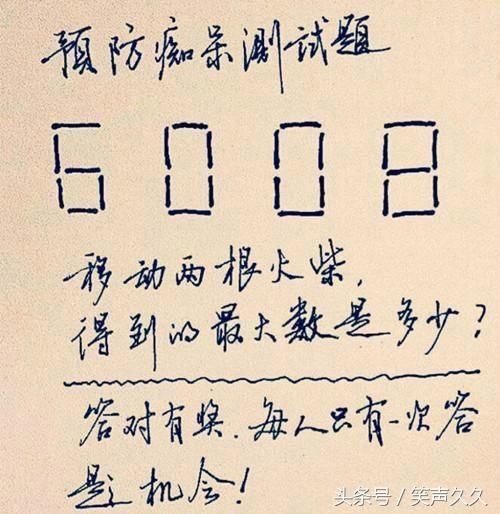 预防痴呆测试题
6008
移动两根火柴,
得到的最大数是多少?
答对有奖.每人只有一次答
题机会!
头条号/笑声久久